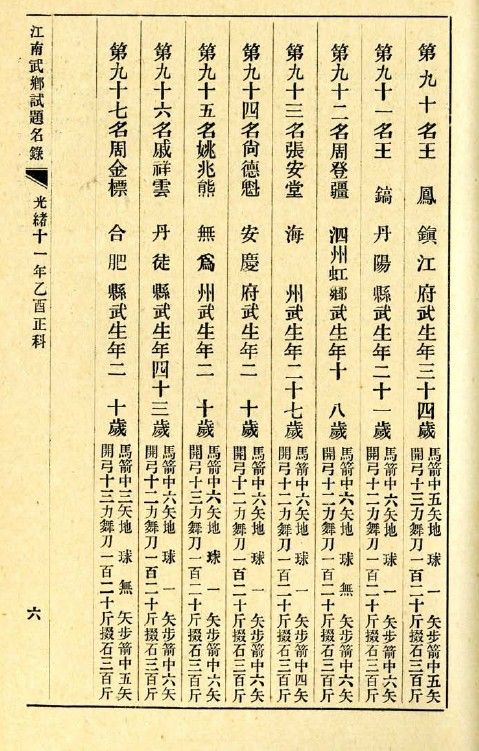 第九十名王鳳鎭江府武生年三十四歲
馬箭中五矢地球一矢步箭中五矢
開弓十三力舞刀一百二十斤掇石三百斤
第九十一名王鎬丹陽縣武生年二十一歲
馬箭中六矢地球一矢步箭中六矢
開弓十二力舞刀一百二十斤掇石三百斤
第九十二名周登疆泗州虹鄉武生年十八歲
馬箭中六矢地球無矢步箭中六矢
開弓十二力舞刀一百二十斤掇石三百斤
第九十三名張安堂海州武生年二十七歲
馬箭中六矢地球一矢步箭中四矢
開弓十二力舞刀一百二十斤掇石三百斤
第九十四名尙德魁安慶府武生年二十歲
馬箭中六矢地球一矢步箭中六矢
開弓十二力舞刀一百二十斤掇石三百斤
第九十五名姚兆熊無爲州武生年二十歲
馬箭中六矢地球一矢步箭中六矢
開弓十三力舞刀一百二十斤掇石三百斤
第九十六名戚祥雲丹徒縣武生年四十三歲
馬箭中六矢地球一矢步箭中六矢
開弓十二力舞刀一百二十斤掇石三百斤
第九十七名周金標合肥縣武生年二十歲
馬箭中三矢地球無矢步箭中五矢
開弓十三力舞刀一百二十斤掇石三百斤
江南武鄉試題名錄 光緒十一年乙酉正科 六